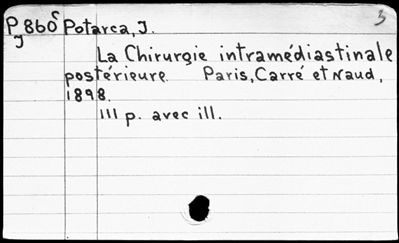 P860 Potarca, J. 3
J
La Chirurgie intramédiastinale
postérieure Paris, Carré et Naud,
1898.
111 p. avec ill.